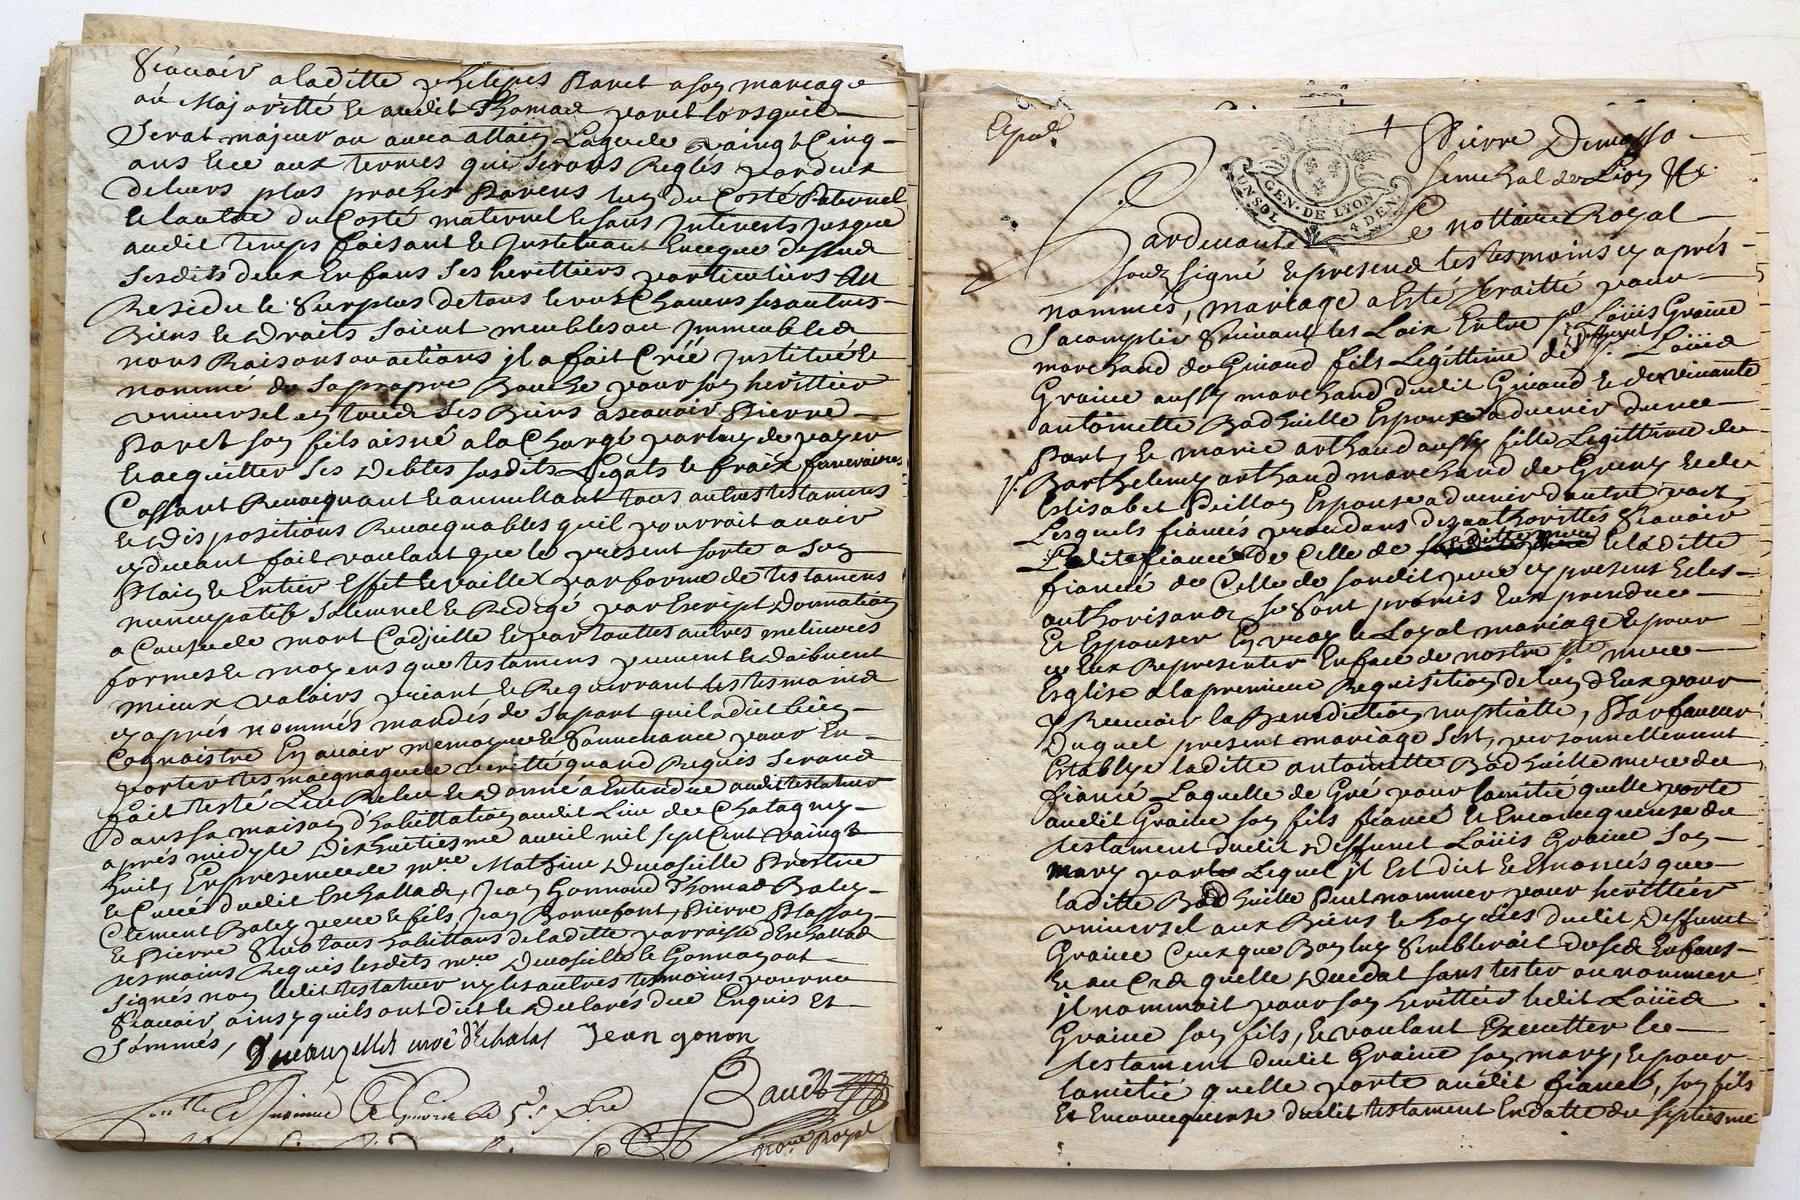 Scauoir a laditte phelipes Paret a son mariage
ou Majoritté et audit Thomas paret lors quil
Serat majeur ou aura attain Laage de vaingt Cinq
ans Et ce aux termes qui Serons Reglés par deux
de leurs plus proches Parens lun du Costé Paternel
Et lautre du Costé maternel et sans Interests jusques
audit temps faisant et Instituant Enceque dessus
Sesdits deux Enfans Ses herittiers particuliers Au
Residu et Surplus de tous et uns Chacuns ses autres
Biens et Droits Soient meubles ou Immeubles
noms Raisons ou actions jl a fait Créé Institué Et
nommé de Sa propre Bouche pour son herittier
vniuersel en tous Ses Biens ascauoir Pierre
Paret son fils aisné a la Charge par luy de payer
Et acquitter Ses Debtes susdits Legats et fraix funeraires
Cassant Reuocquant Et annullant tous autres testamens
Et Dispositions Reuocquables quil pourrait auoir
cy deuant fait voulant que le present sorte a Son
Plain et Entier Effet Et vaille par forme de testamens
nuncupatifs Solemnel et Redigé par Escript Donnation
a Cause de mort Codjcille et par touttes autres meilieures
formes et moyens que testamens peuuent et Doibuent
mieux valoirs priant et Requerrant les tesmoins
cy aprés nommés mandés de Sa part quil a dit bien
Cognoistre En auoir memoyre et Souuenance pour En
porter tesmoignage de verité quand Requis Serons
fait testé Leu Releu et Donné a Entendre audit testateur
dans sa maison d'habittation audit Lieu de Chatagny
aprés midy le Dixhuictiesme auril mil sept Cent vaingt
huit, En presence de mre Mathieu Ducoseille Prestre
et Curé dudit Eschallas, Jean Gonnond Thomas Baley
Clement Baley pere et fils, Jean Bonnefont, Pierre Plasson
Et Pierre tous habittans de laditte parroisse d'Eschallas
tesmoins Requis lesdits mre Ducoseille et Gonnon ont
signés non ledit testateur ny les autres tesmoins pour ne
Scauoir ainsy quils ont dit et Declarés de ce Enquis Et
Sommés, curé d'Echalas Jean gonon
Baudt
no.re Royal
Expd.
Pierre Dumasso
Senechal de Lion &c.
GEN. DE LYON
UN SOL 4 DEN.
Pardeuant Le nottaire Royal
soubsigné Et presens les tesmoins cy aprés
nommés, mariage a Esté traitté pour
Sacomplir Suiuant les Loix Entre sr Loüis Graine
marchand de Giuord fils Legittime de deffunt sr. Loüis
Graine aussy marchand dudit Giuord Et de viuante
antoinette Badhuille Espoux aduenir dune
Part, Et marie arthaud aussy fille Legittime de
sr. Barthelemy arthaud marchand de Greny Et de
Elisabet Peillon Espouse aduenir d'autre part
Lesquels fiancés procedans des authorittés Scauoir
Ledit fiancé de Celle de laditte mere Et laditte
fiancé de Celle de sondit pere cy present Et les
authorisans se Sont promis Eux prendre
Et Espouser En vray et Loyal mariage Et pour
ce Eux Representer En face de nostre ste mere
Esglise a la premiere Requisition de lun d'Eux pour
y Receuoir la Benediction nuptialle, En faueur
Duquel present mariage S'est, personnellement
Establye laditte antoinette Badhuille mere du
fiancé Laquelle de Gré pour lamitié quelle porte
audit Graine son fils fiancé Et En consequence du
testament dudit Deffunct Loüis Graine Son
mary par Lequel jl Est dit et Enoncés que
laditte Badhuille Peut nommer pour herittier
vniuersel aux Biens et hoyries dudit Deffunct
Graine Ceux que Bon luy Sembleroit de ses Enfans
Et au Cas quelle Deceda Sans tester ou nommer
jl nommoit pour son herittier ledit Loüis
Graine son fils, Et voulant Executter le
testament dudit Graine son mary, Et pour
lamitié quelle porte audit fiancé, son fils
Et En consequense dudit testament En datte du septiesme